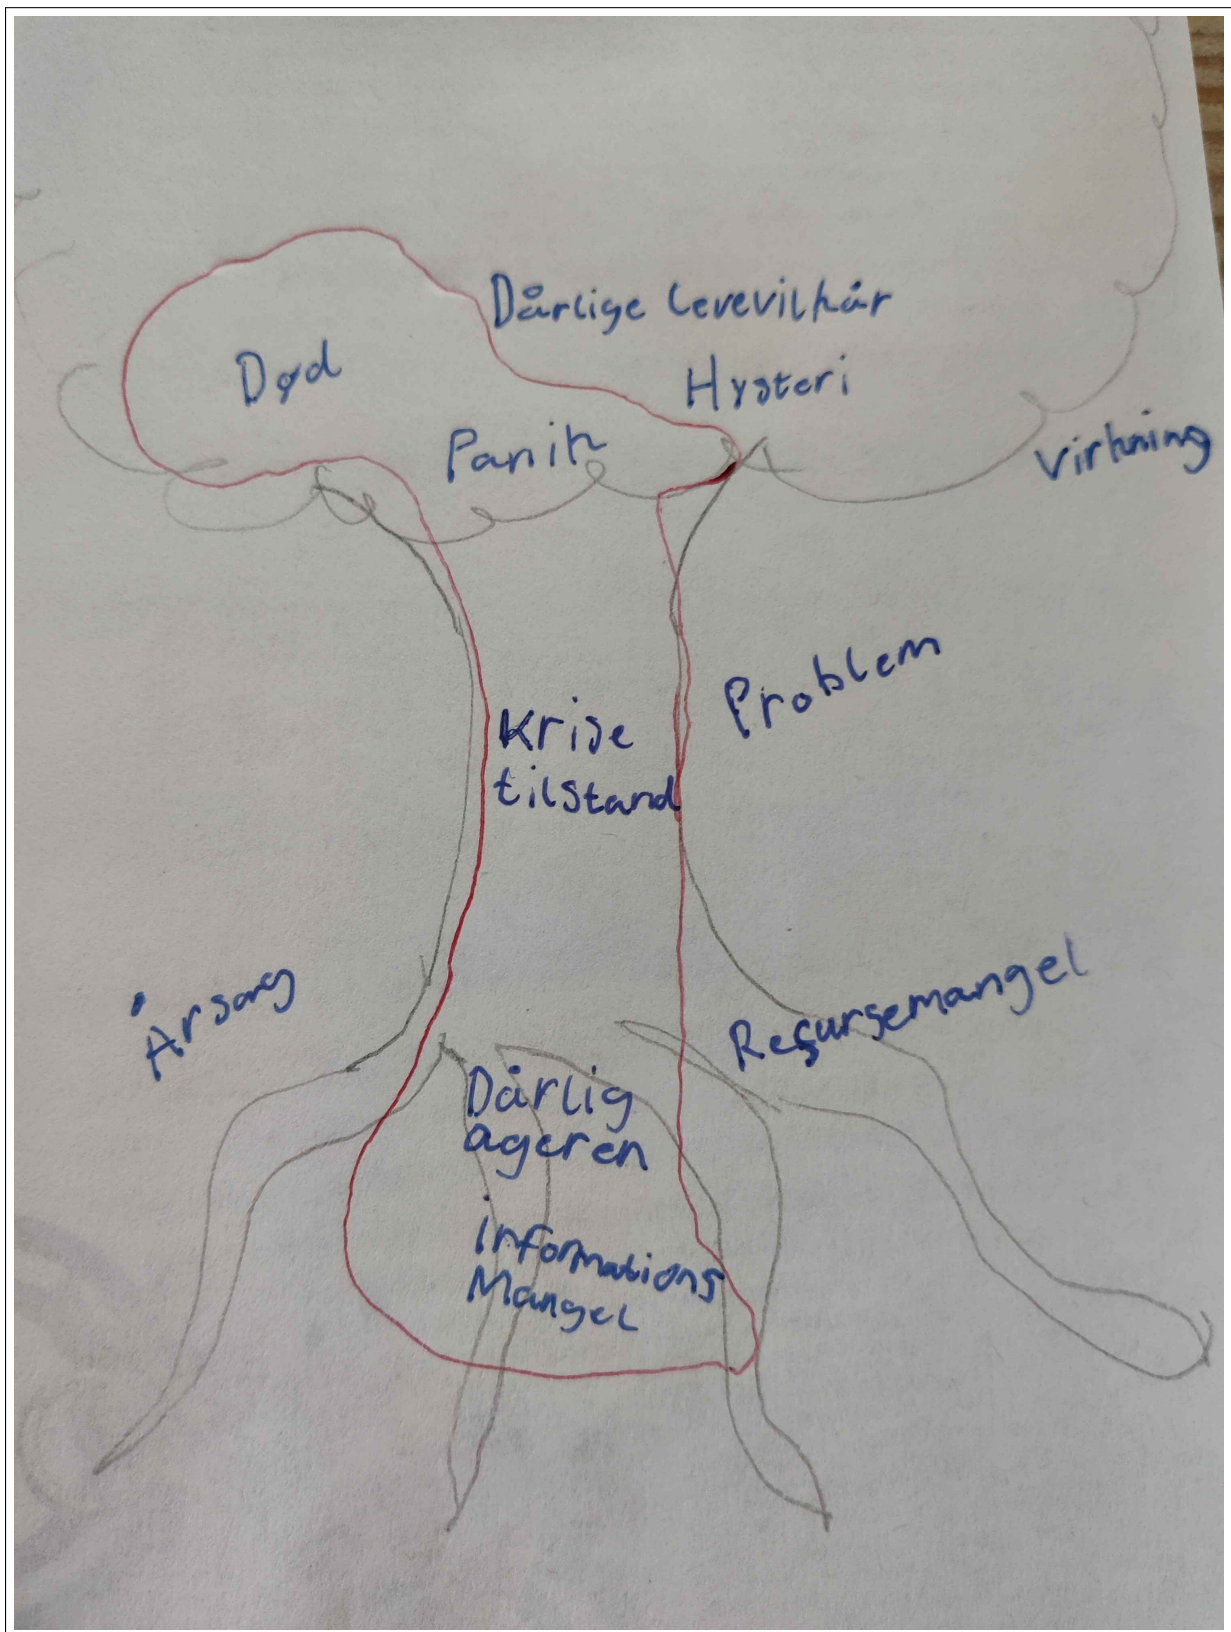 Dårlige levevilkår
Død
Hysteri
Panik
Virkning
Problem
Krise
tilstand
Årsag
Resursemangel
Dårlig
ageren
informations
Mangel